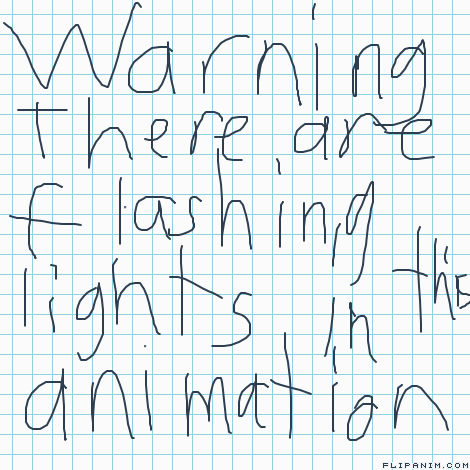 Warning
there are
flashing
lights in this
animation
FLIPANIM.COM